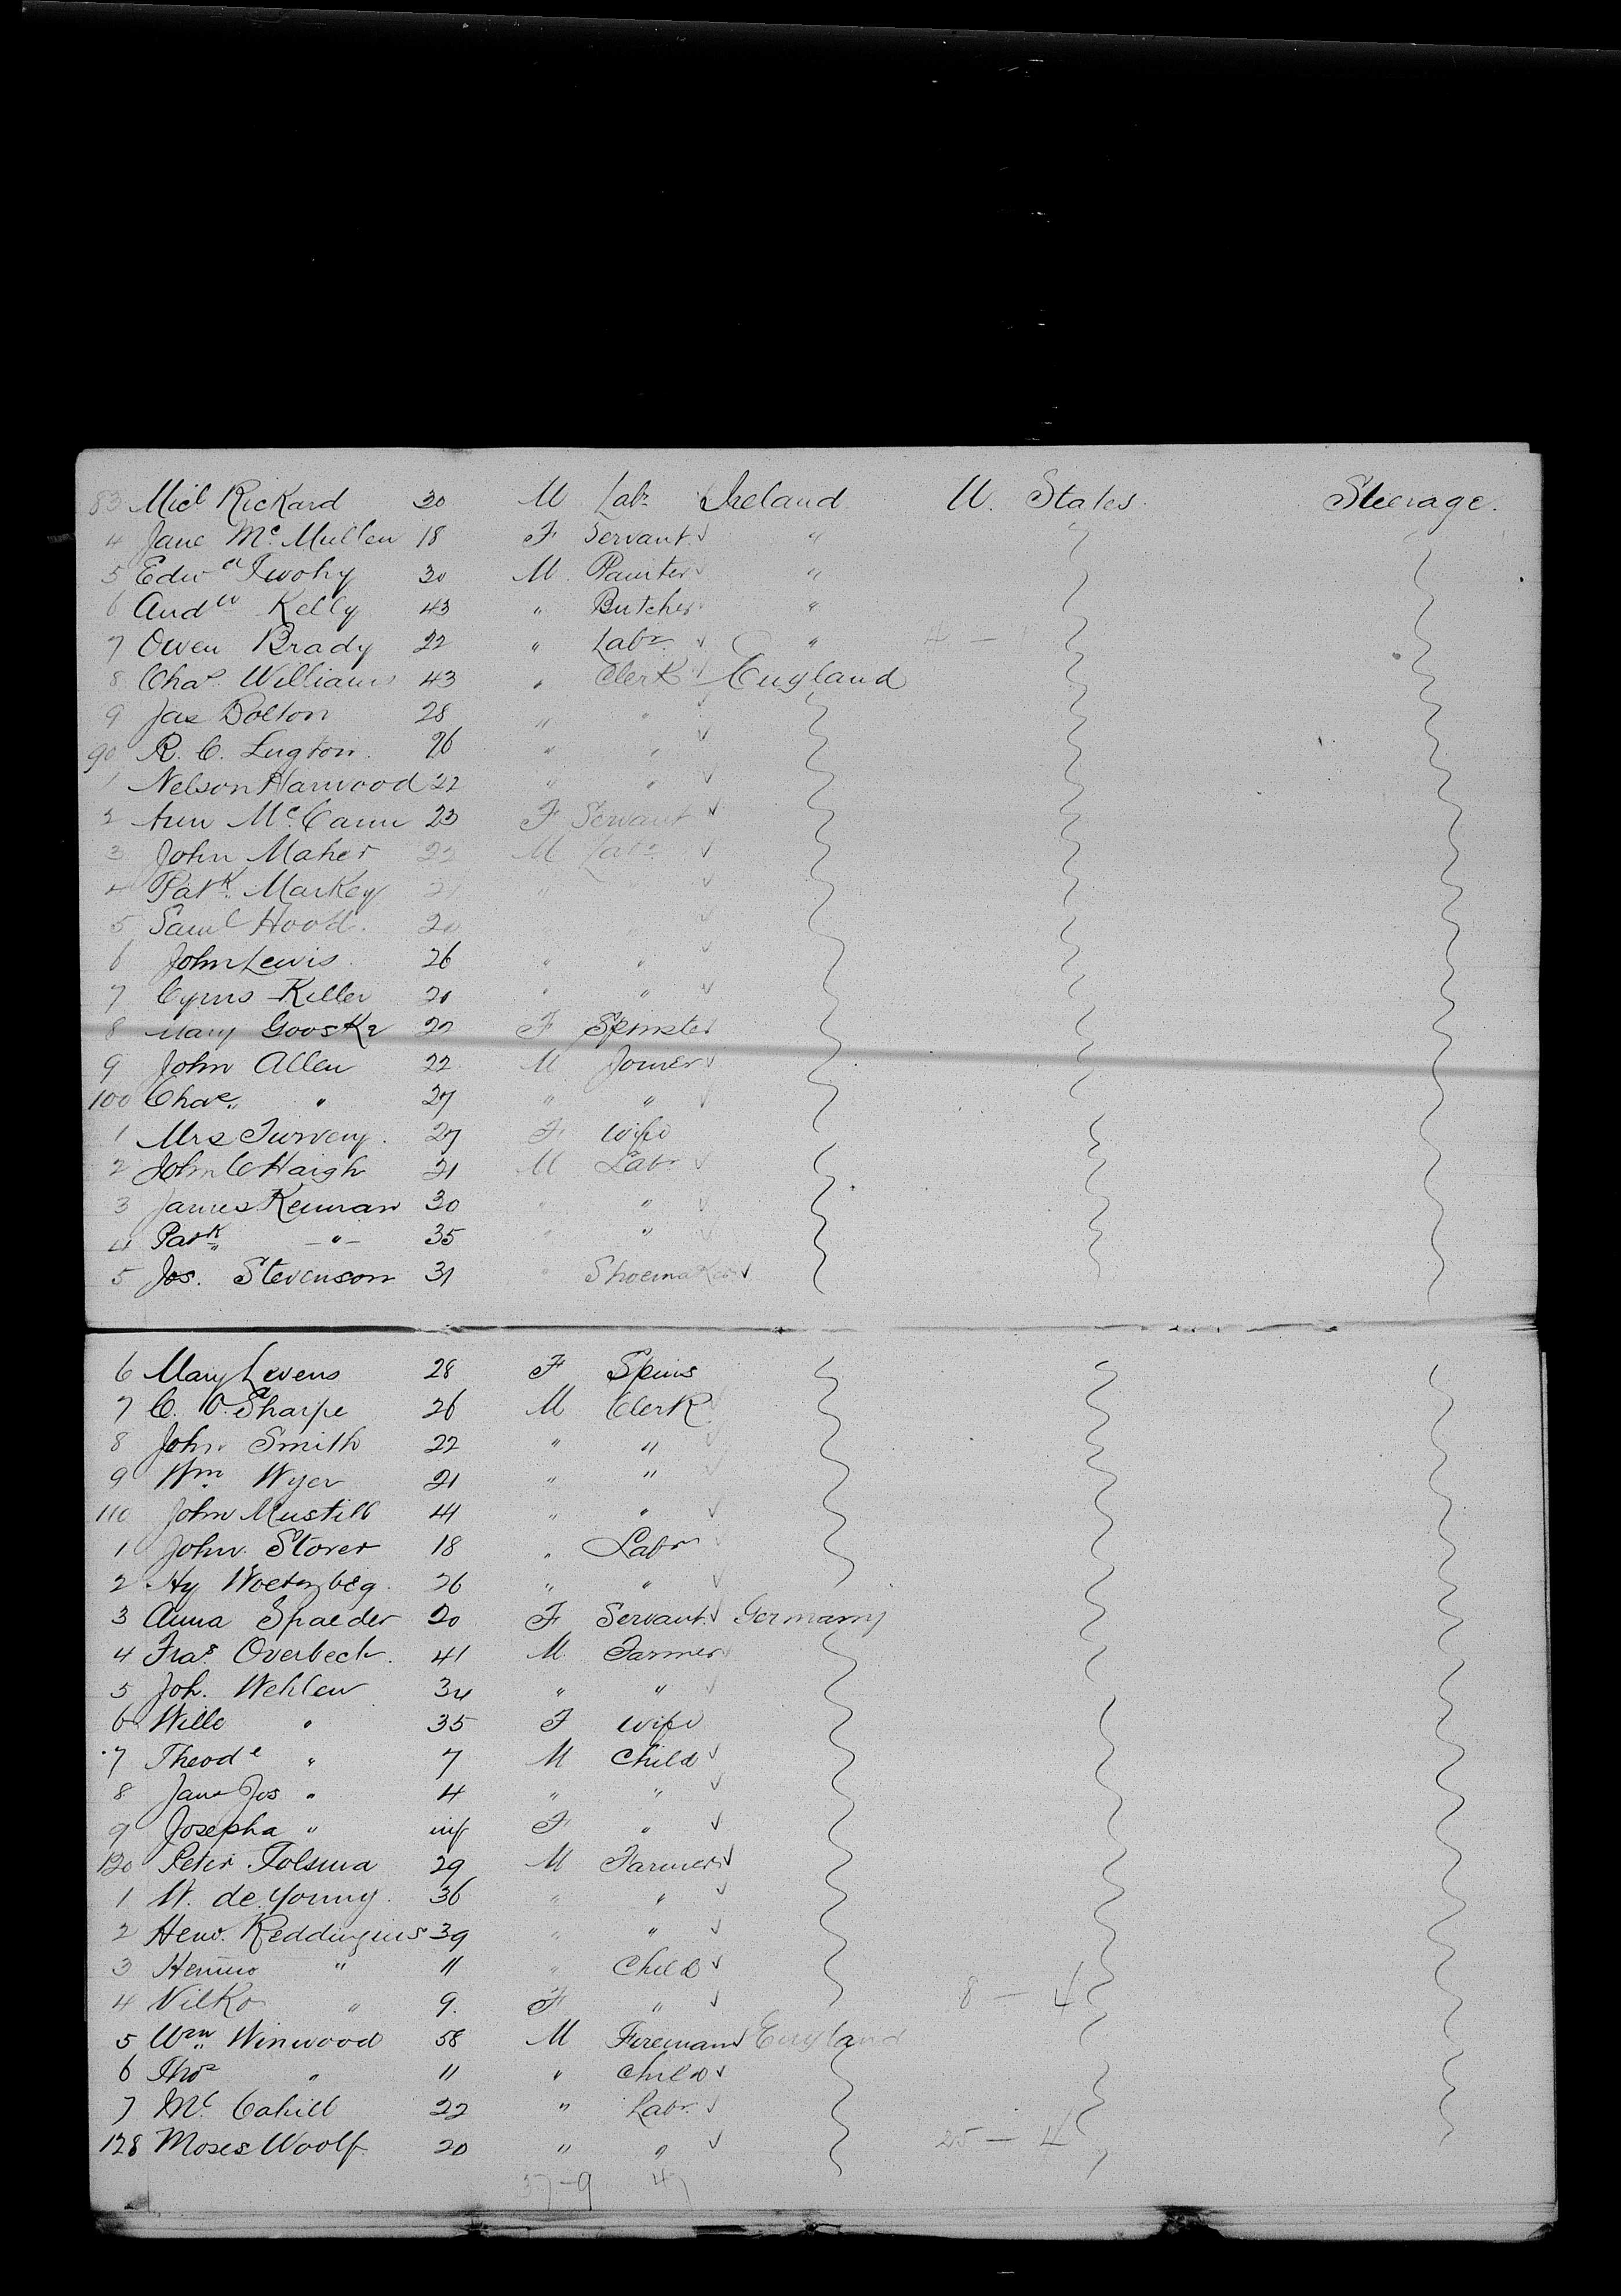 83 Micl Rickard 30 M Labr Ireland U. States Steerage.
4 Jane McMullen 18 F Servant "
5 Edwd Twohy 30 M Painter "
6 Andw Kelly 43 " Butcher "
7 Owen Brady 22 " Labr "
8 Chas Williams 43 " Clerk England
9 Jas Bolton 28 " "
90 R. C. Lugton 26 " "
1 Nelson Harwood 22 " "
2 Ann McCann 23 F Servant
3 John Maher 22 M Labr
4 Patk Markey 21 " "
5 Saml Hood. 20
6 John Lewis 26 " "
7 Cyrus Keller 20 " "
8 Mary 22 F Spinster
9 John Allen 22 M Joiner
100 Chas " 27 " "
1 Mrs Turvey. 27 F Wife
2 John C Haigh 21 M Labr
3 James Keenan 30 " "
4 Patk " 35 " "
5 Jos. Stevenson 31 " Shoemaker
6 Mary Levens 28 F Spins
7 C. O. Sharpe 26 M Clerk
8 John Smith 22 " "
9 Wm Wyer 21 " "
110 John Mustill 44 " "
1 John Storer 18 " Labr
2 Hy 26 " "
3 Anna Spaeder 20 F Servant Germany
4 Fras Overbeck. 41 M Farmer
5 Joh. Wehlen 34 " "
6 Wille " 35 F Wife
7 Theode " 7 M Child
8 Jane Jos " 4 " "
9 Josepha " inf F "
120 Peter Tolsma 29 M Farmer
1 W. de Young. 36 " "
2 Henr. Reddingius 39 " "
3 " 11 " Child
4 Nilko " 9. F " 8 – 4
5 Wm Winwood 58 M Fireman England
6 Thos " 11 " Child
7 Ml Cahill 22 " Labr
128 Moses Woolf 20 " " 25 – 4
37–9 47